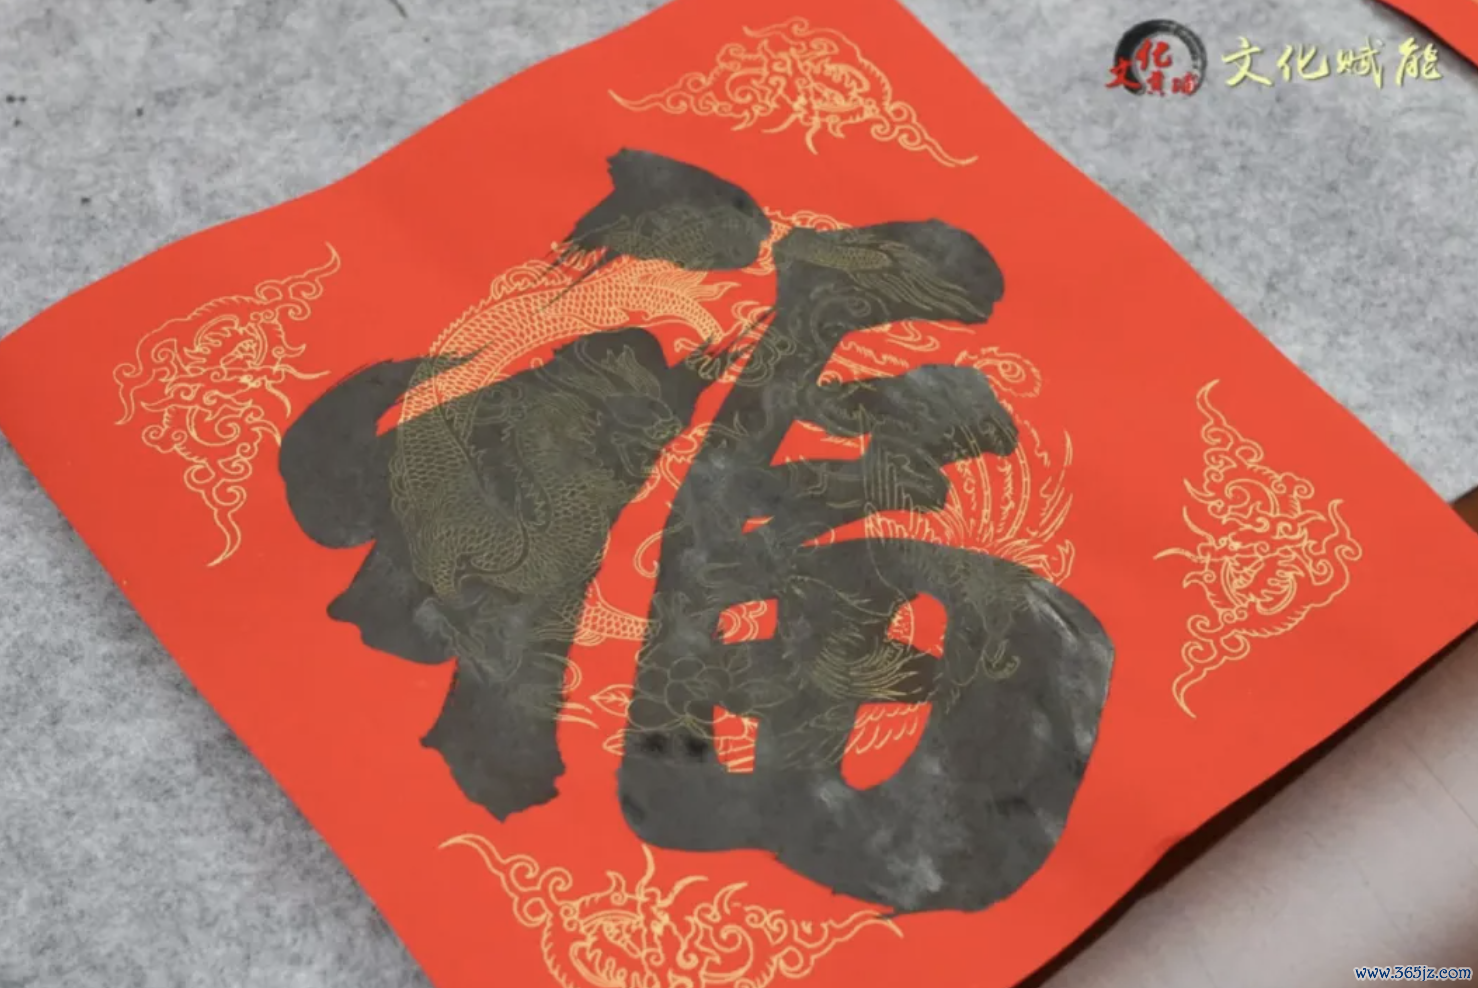 文化黄埔
文化赋能
福
www.365jz.com